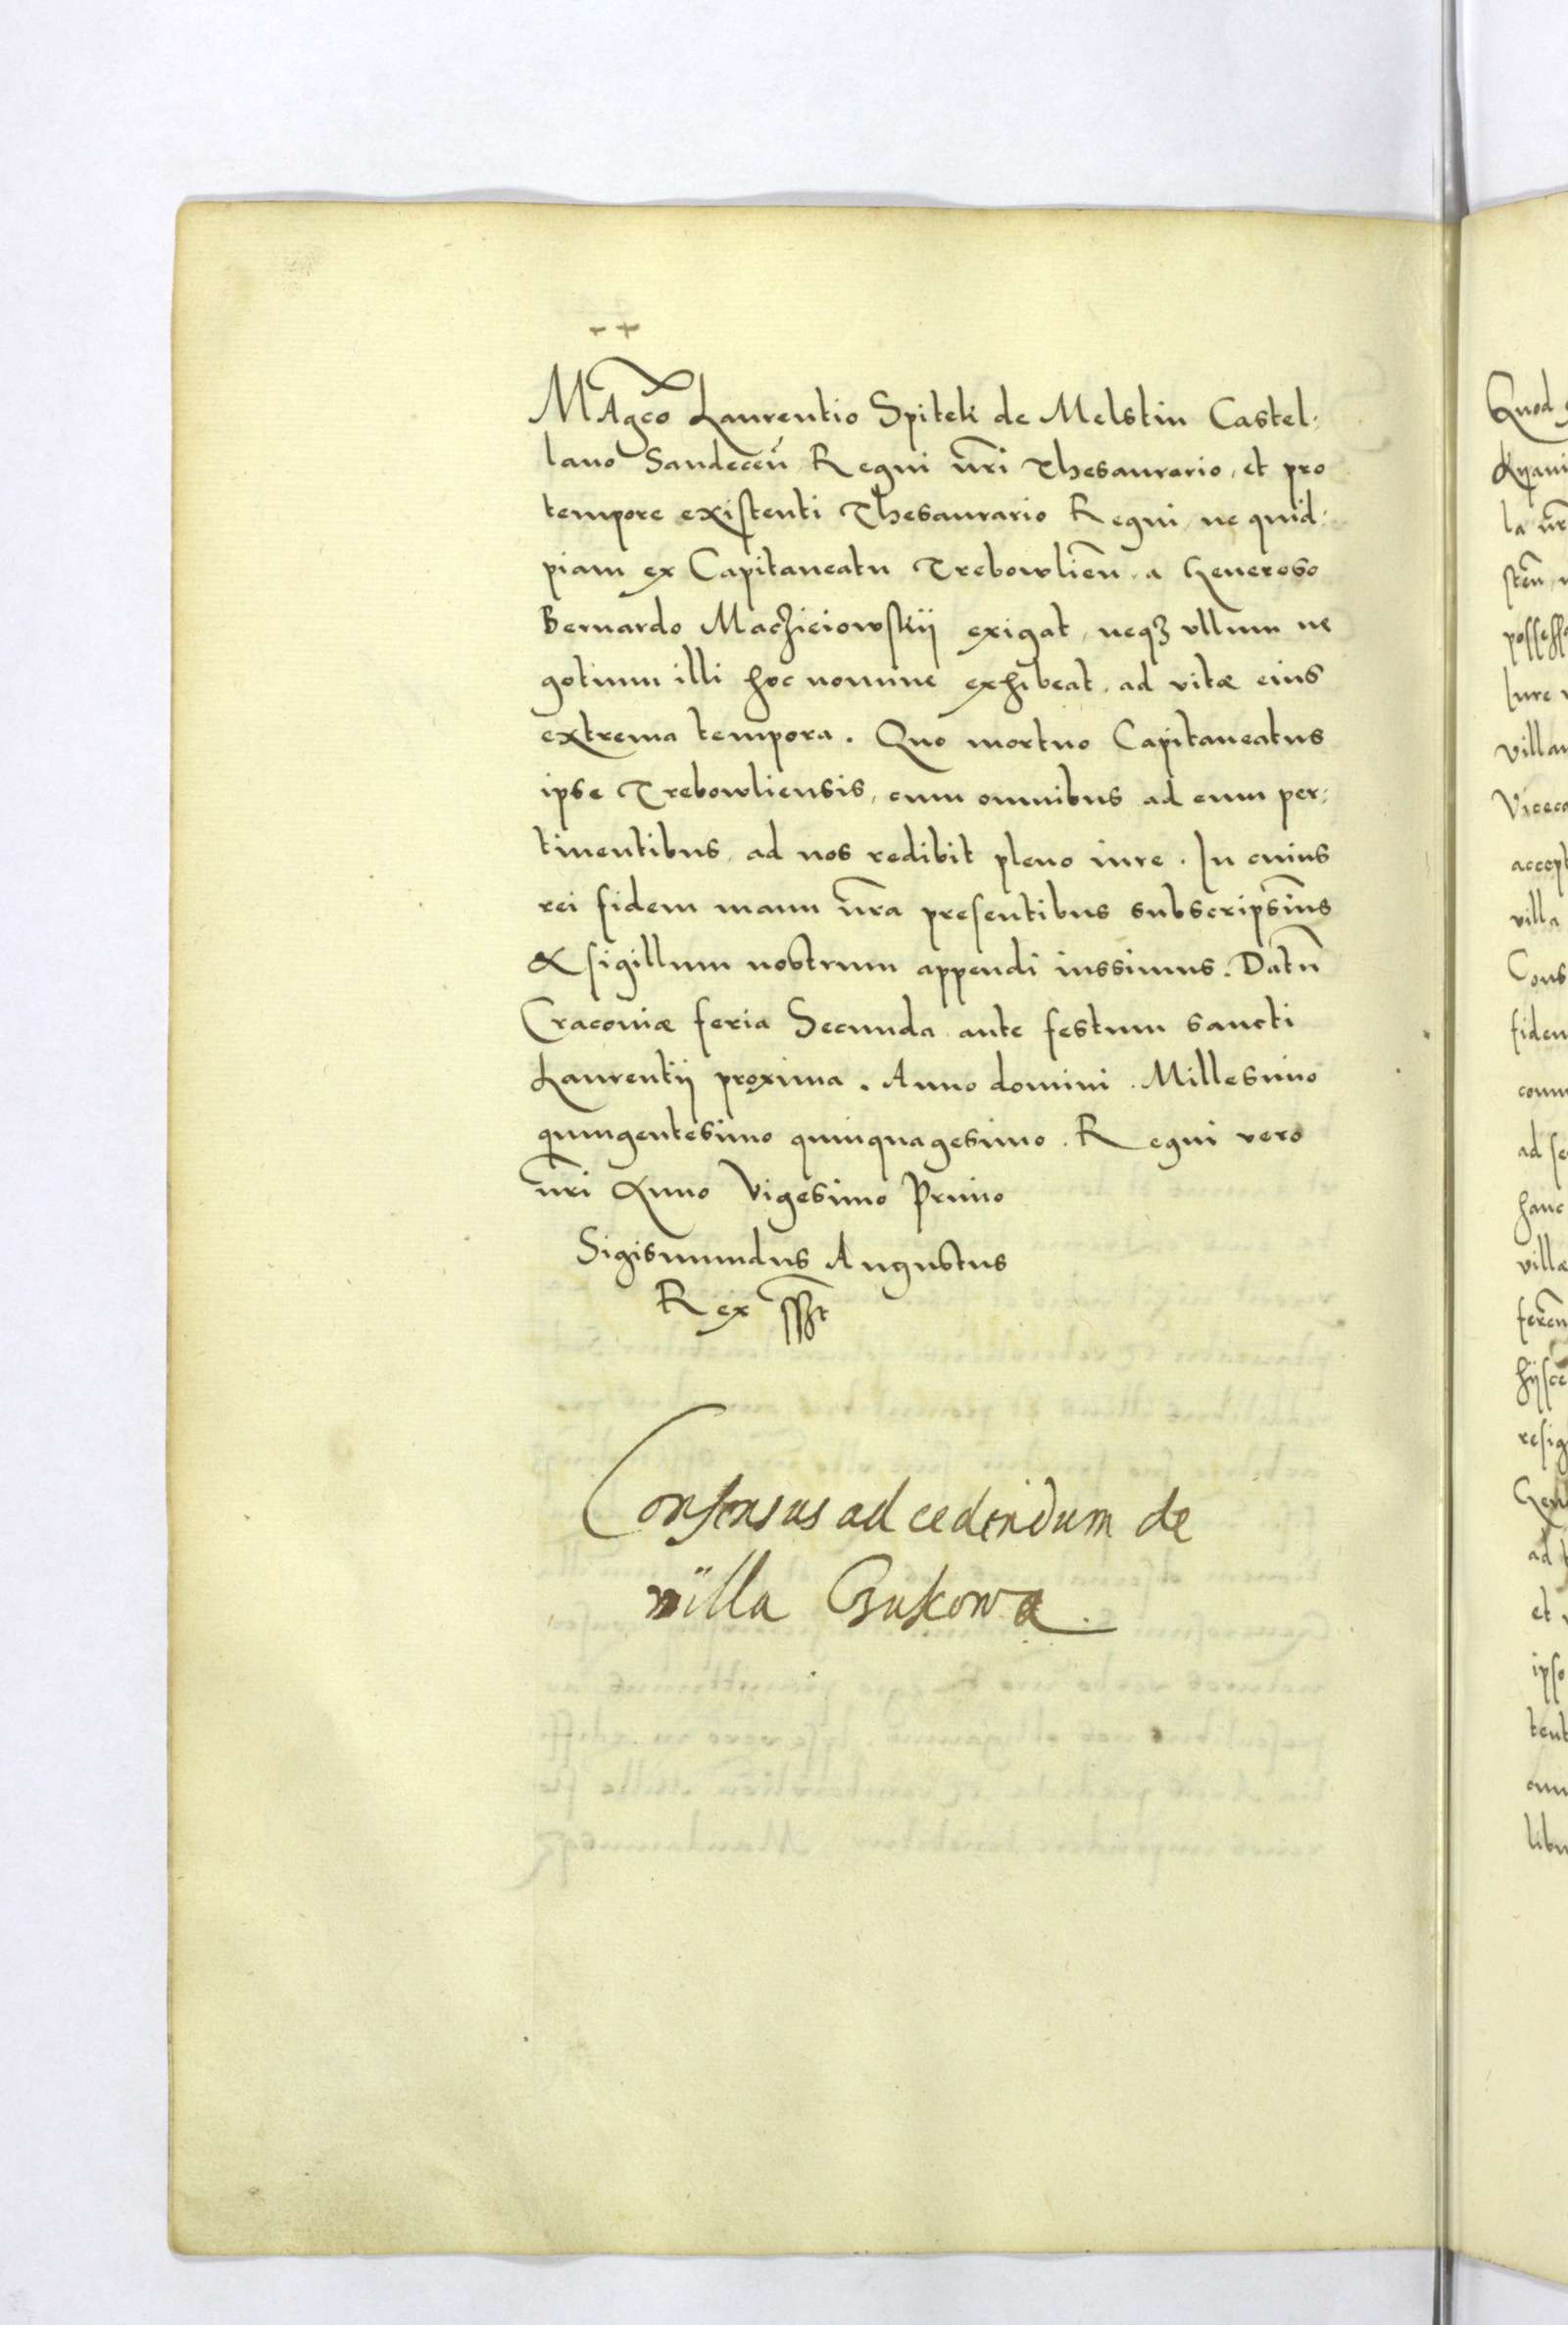 MAgco Laurentio Spitek de Melstin Castel:
lano Sandeceń Regni nr̃i Thesaurario, et pro
tempore existenti Thesaurario Regni, ne quid:
piam ex Capitaneatu Trebowlień. a Generoso
Bernardo Macziciowskij exigat, neqz ullum ne
gotium illi hoc nomine exhibeat, ad vitæ eius
extrema tempora. Quo mortuo Capitaneatus
ipse Trebowliensis, cum omnibus ad eum per:
tinentibus, ad nos redibit pleno iure. In cuius
rei fidem manu nr̃a presentibus subscripsim̃s
& sigillum nostrum appendi iussimus. Datũ
Cracoviæ feria Secunda ante festum sancti
Laurentij proxima. Anno domini. Millesimo
quingentesimo quinquagesimo. Regni vero
nr̃i Anno Vigesimo Primo
Sigismundus Augustus
Rex sszt
Consensus ad cedendum de
villa
Quod
villa
Cons
ad se
hanc
villæ
ipso